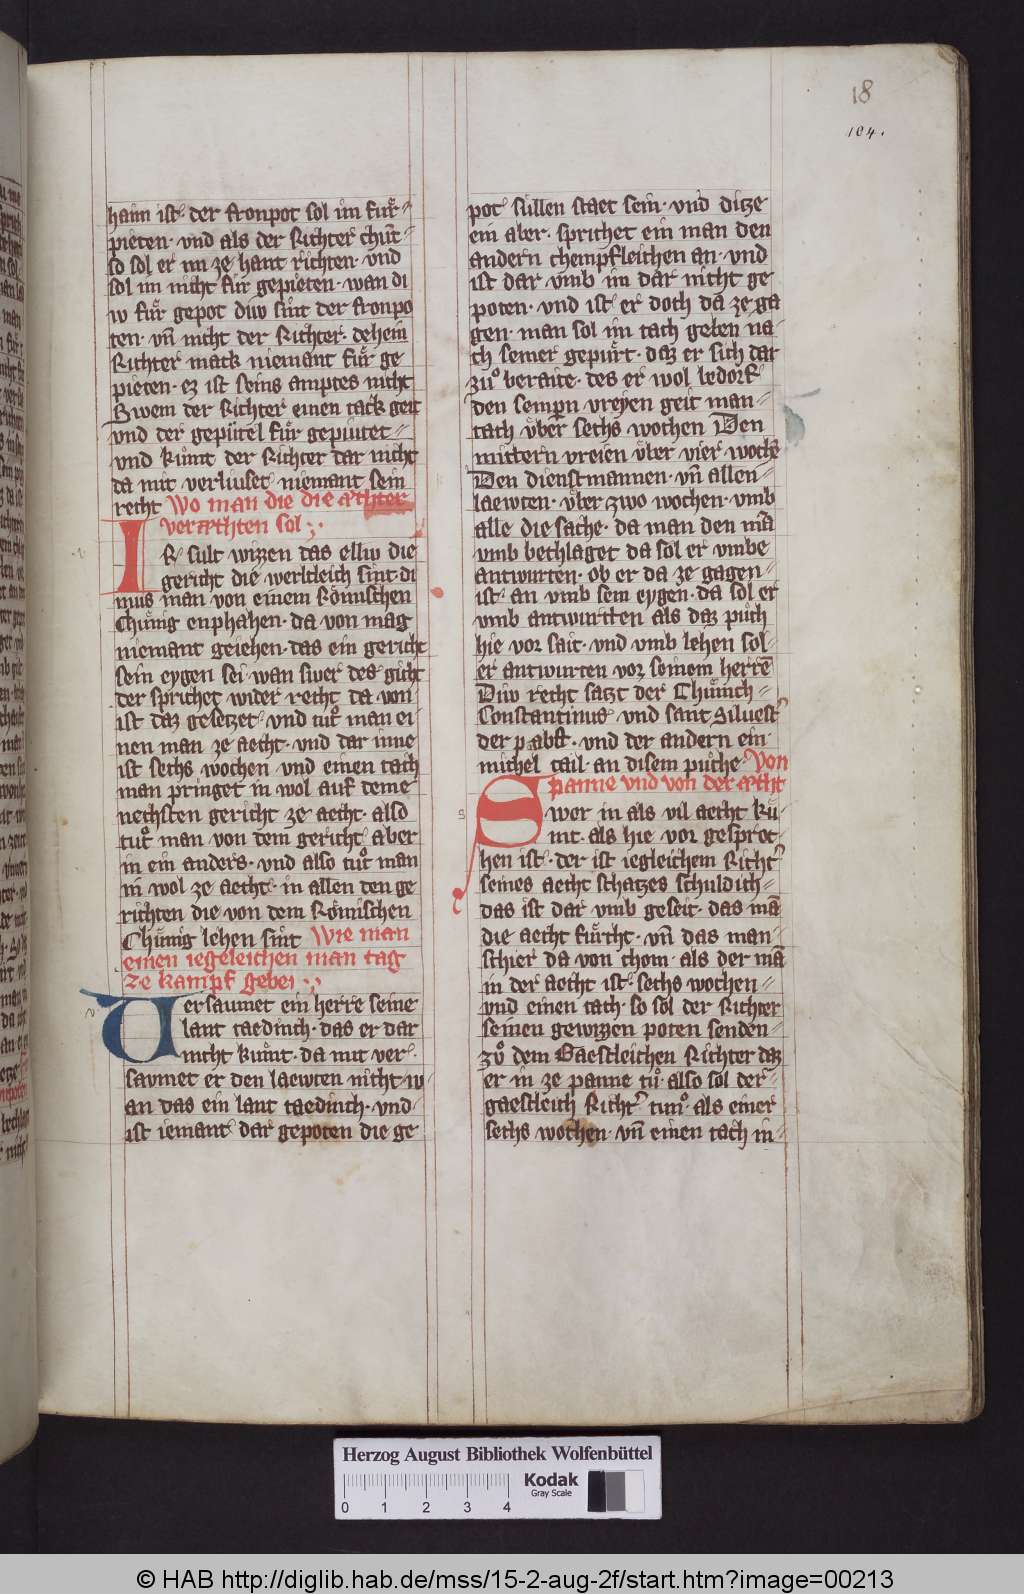 18
104.
haim ist· der fronpot sol im fuͤr-
pieten· vnd als der Richter chuͤt-
so sol er im ze hant richten· vnd
sol im nicht fuͤr gepieten· wan di
w fuͤr gepot diw sint der fronpo
ten· vn̄ nicht der Richter· dehein
Richter mack niemant fuͤr ge
pieten· ez ist seins amptes nicht
Swem der Richter einen tack geit
vnd der gepuͤtel fuͤr gepiutet-
vnd kuͦmt der Richter dar nicht
da mit verliuset niemant sein
recht Wo man die die æchter
veræchten sol
IR sult wizzen das elliw die
gericht die werltleich sint· di
mus man von einem Roͤmischen
Chuͤnig enphahen· da von mag
niemant geiehen· das ein gericht
sein eygen sei· wan swer des giht
der sprichet wider recht da von
ist daz gesetzet· vnd tuͦt man ei
nen man ze aecht· vnd dar inne
ist sechs wochen vnd einen tach
man pringet in wol auf deme
nechsten gericht ze aecht· also
tuͦt man von dem gericht aber
in ein anders· vnd also tuͦt man
in wol ze aecht· in allen den ge
richten die von dem Roͤmischen
Chuͤnig lehen sint Wie man
einen iegeleichen man tag
ze kampf gebei
Versaumet ein herre seine
lant taedinch· das er dar
nicht kuͦmt· da mit ver·
saumet er den laewten nicht· w
an das ein lant taedinch· vnd·
ist iemant dar gepoten die ge
pot suͤllen staet sein· vnd ditze
ein aber· sprichet ein man den
andern chempfleichen an· vnd
ist dar vmb im dar nicht ge
poten· vnd ist er doch da ze ga
gen· man sol im tach geben na
ch seiner gepuͤrt· daz er sich dar
zuͦ beraite· des er wol bedorf
den sempn vreyen geit man-
tach vͤber sechs wochen Den
mittern vreien vͤber vier wochē
Den dienstmannen· vn̄ allen-
laewten· vͤber zwo wochen· vmb
alle die sache· da man den mā
vmb bechlaget da sol er vmbe
antwurten· ob er da ze gagen-
ist· an vmb sein eygen· da sol er
vmb antwurtten als daz puͦch
hie vor sait· vnd vmb lehen sol-
er antwurten vor seinem herrē
Diw recht satzt der Chuͤnich-
Constantinus vnd sant Siluest
der pabst· vnd der andern ein
michel tail· an disem puͦche· Von
panne vnd von der æcht
Swer in als vil aecht kuͦ
mt· als hie vor gesproc-
hen ist· der ist iegleichem Richt
seines aecht schatzes schuldich-
das ist dar vmb geseit· das mā
die aecht fuͤrcht· vn̄ das man-
schier da von chom· als der mā
in der aecht ist· sechs wochen-
vnd einen tach· so sol der Richter
seinen gewizzen poten senden-
zuͦ dem Gaestleichen Richter daz
er in ze panne tuͦ· also sol der-
gaestleich Richt tun· als einer
sechs wochen· vn̄ einen tach in-
Herzog August Bibliothek Wolfenbüttel
Kodak
Gray Scale
0 1 2 3 4
© HAB http://diglib.hab.de/mss/15-2-aug-2f/start.htm?image=00213